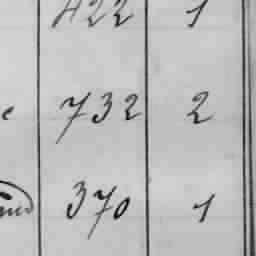 422 1
e 732 2
370 1